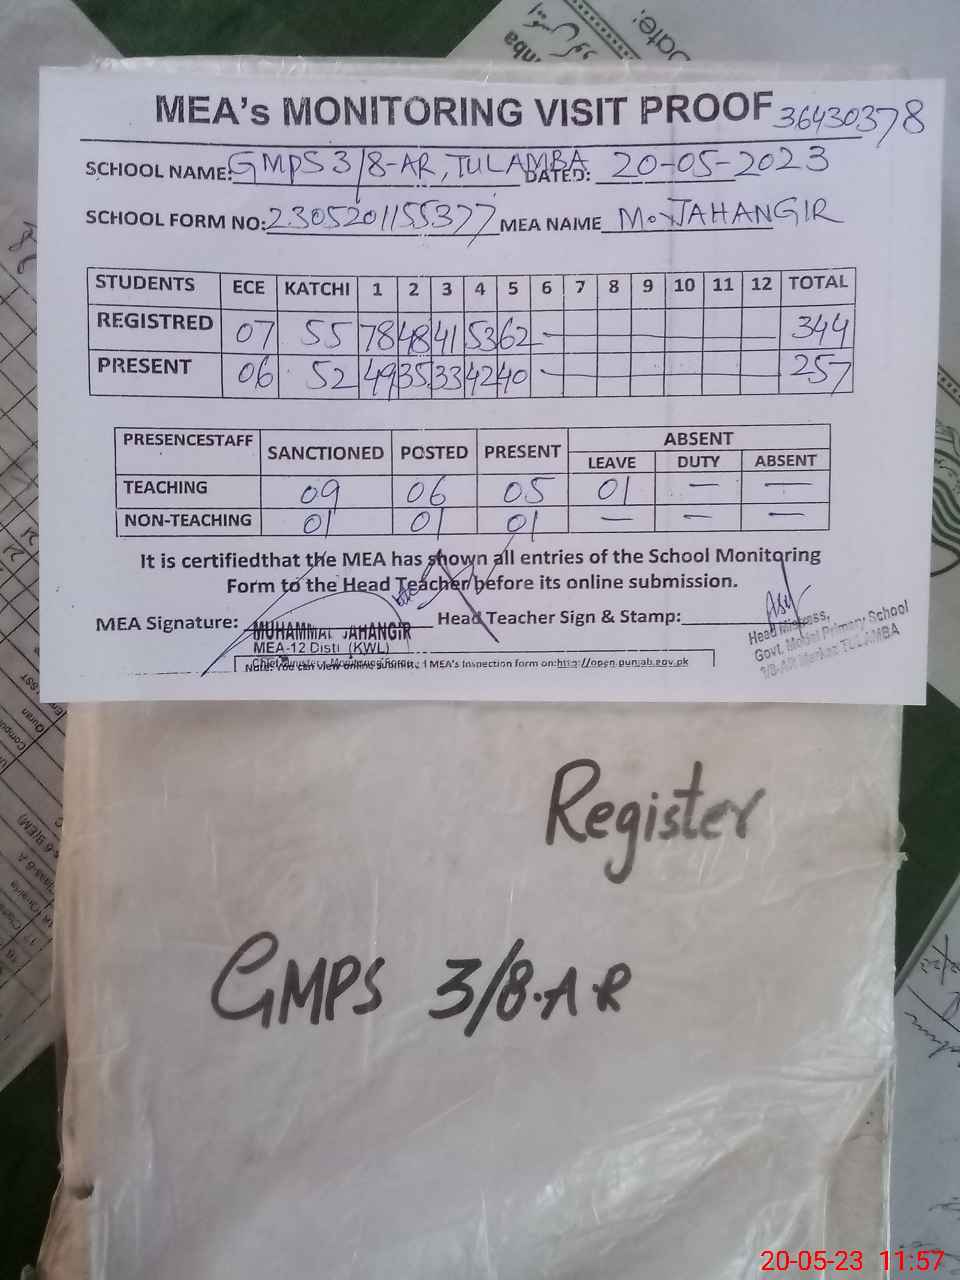 MEA's MONITORING VISIT PROOF 36430378
SCHOOL NAME: GMPS 3/8-AR, TULAMBA DATED: 20-05-2023
SCHOOL FORM NO: 2305201155377 MEA NAME M. JAHANGIR
STUDENTS ECE KATCHI 1 2 3 4 5 6 7 8 9 10 11 12 TOTAL
REGISTRED 07 55 78 48 41 53 62 — 344
PRESENT 06 52 49 35 33 42 40 — 257
PRESENCESTAFF SANCTIONED POSTED PRESENT ABSENT
LEAVE DUTY ABSENT
TEACHING 09 06 05 01 — —
NON-TEACHING 01 01 01 — — —
It is certifiedthat the MEA has shown all entries of the School Monitoring
Form to the Head Teacher before its online submission.
MEA Signature: Head Teacher Sign & Stamp:
MUHAMMAD JAHANGIR
MEA-12 Distt (KWL)
Note: You can view online submitted MEA's Inspection form on:http://open.punjab.gov.pk
Head Mistress,
Govt. Model Primary School
Markaz TULAMBA
Register
GMPS 3/8.A.R
20-05-23 11:57